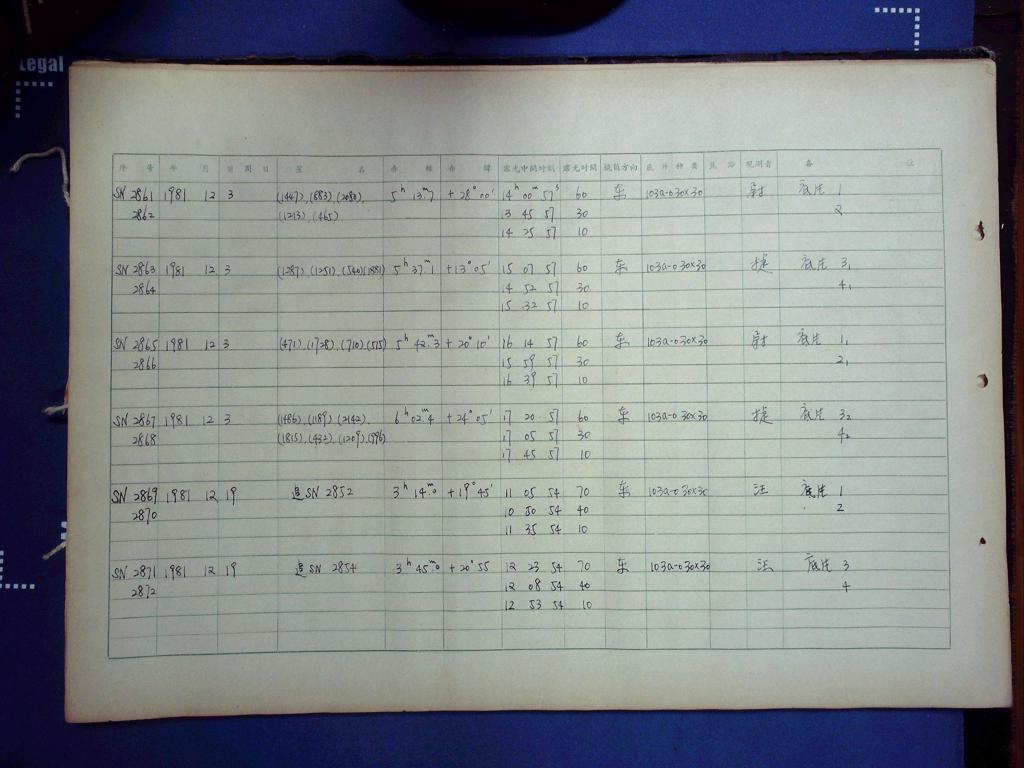 Legal
序 号 年 月 日 周 日 星 名 赤 经 赤 纬 露光中间时刻 露光时间 镜筒方向 底片种类 观测者 备 注
SN 2861 1981 12 3 (1447).(883).(2080). 5h 13m.7 +28°00' 14h 00m 57s 60 东 103a-0 30×30 尉 底片 1
2862 (1213).(465). 13 45 57 30 2
14 25 57 10
SN 2863 1981 12 3 (1287).(1251).(540)(1981) 5h 37m.1 +13°05' 15 07 57 60 东 103a-0 30×30 捷 底片 31
2864 14 52 57 30 41
15 32 57 10
SN 2865 1981 12 3 (471).(1728).(710).(515) 5h 42m.3 +20°10' 16 14 57 60 东 103a-0 30×30 尉 底片 11
2866 15 59 57 30 21
16 39 57 10
SN 2867 1981 12 3 (1486).(1189).(2142). 6h 02m.4 +24°05' 17 20 57 60 东 103a-0 30×30 捷 底片 32
2868 (1815).(432).(1209).(996) 17 05 57 30 42
17 45 57 10
SN 2869 1981 12 19 追SN 2852 3h 14m.0 +19°45' 11 05 54 70 东 103a-0 30×30 汪 底片 1
2870 10 50 54 40 2
11 35 54 10
SN 2871 1981 12 19 追SN 2854 3h 45m.0 +20°55 12 23 54 70 东 103a-0 30×30 汪 底片 3
2872 12 08 54 40 4
12 53 54 10